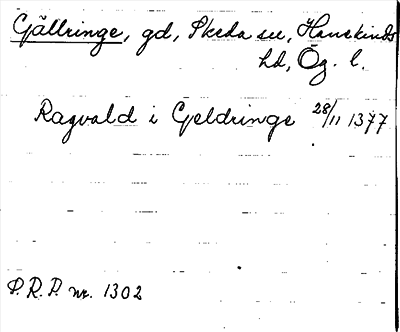 Gällringe, gd, Skeda sn, Hanekinds
hd, Ög. l.
Ragvald i Geldringe 28/11 1377
P.R.P. nr. 1302